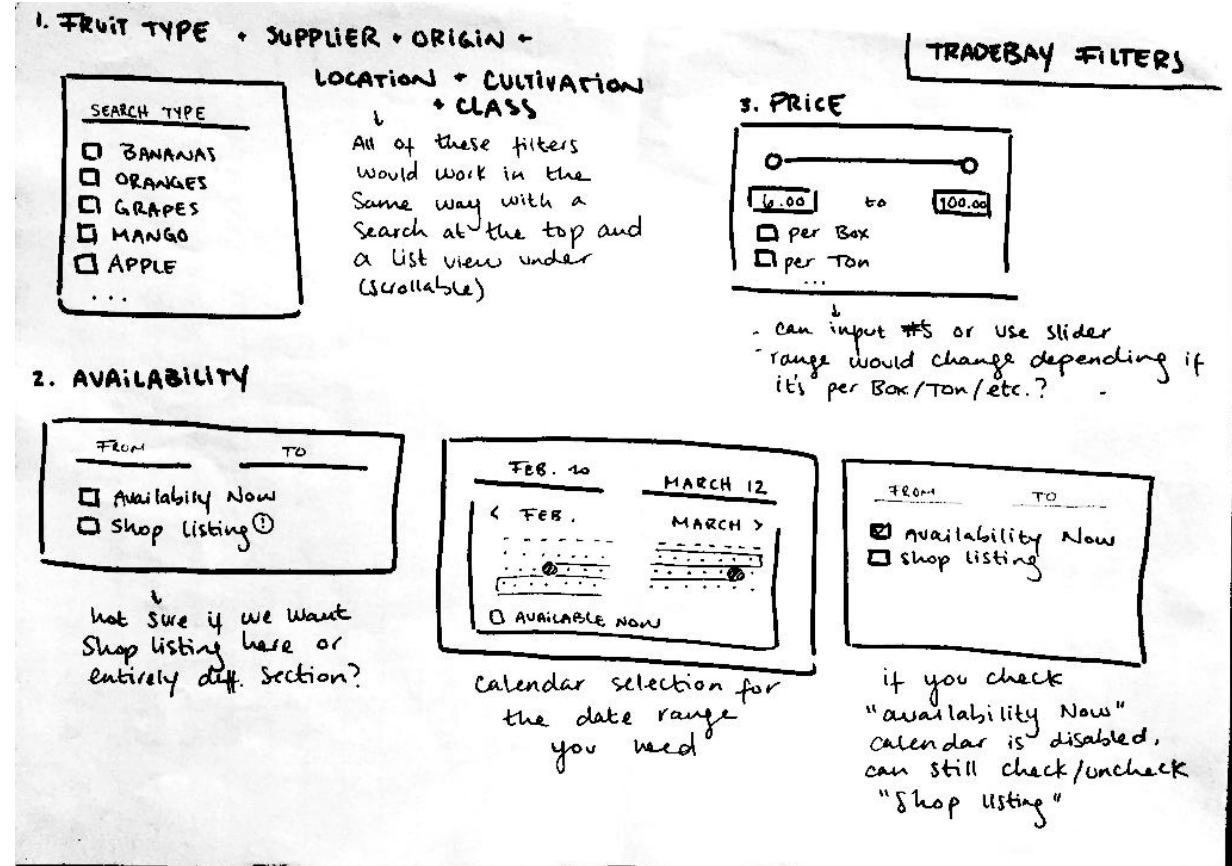 1. FRUIT TYPE + SUPPLIER + ORIGIN +
LOCATION + CULTIVATION
+ CLASS
TRADEBAY FILTERS
SEARCH TYPE
BANANAS
ORANGES
GRAPES
MANGO
APPLE
...
All of these filters
would work in the
same way with a
search at the top and
a list view under
(scrollable)
3. PRICE
6.00 to 100.00
per Box
per Ton
...
- can input #s or use slider
- range would change depending if
it's per Box/Ton/etc.?
2. AVAILABILITY
FROM TO
Availabiliy Now
Shop listing
not sure if we want
Shop listing here or
entirely diff. section?
FEB. 10 MARCH 12
< FEB. MARCH >
AVAILABLE NOW
calendar selection for
the date range
you need
FROM TO
Availability Now
Shop listing
if you check
"availability Now"
calendar is disabled,
can still check/uncheck
"Shop listing"